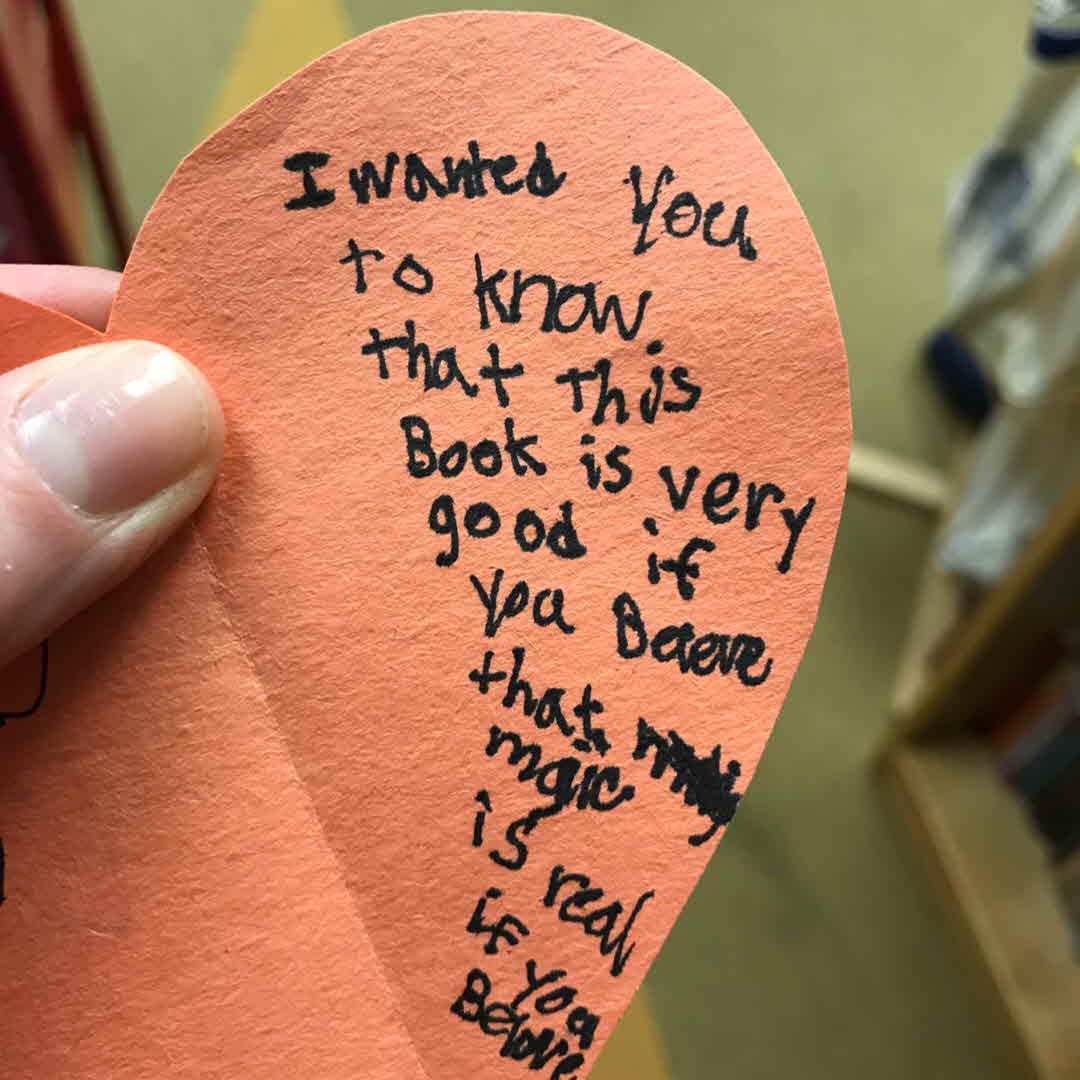 I wanted You
to know
that this
Book is very
good if
you Beleve
that
magic
is real
if you
Belove